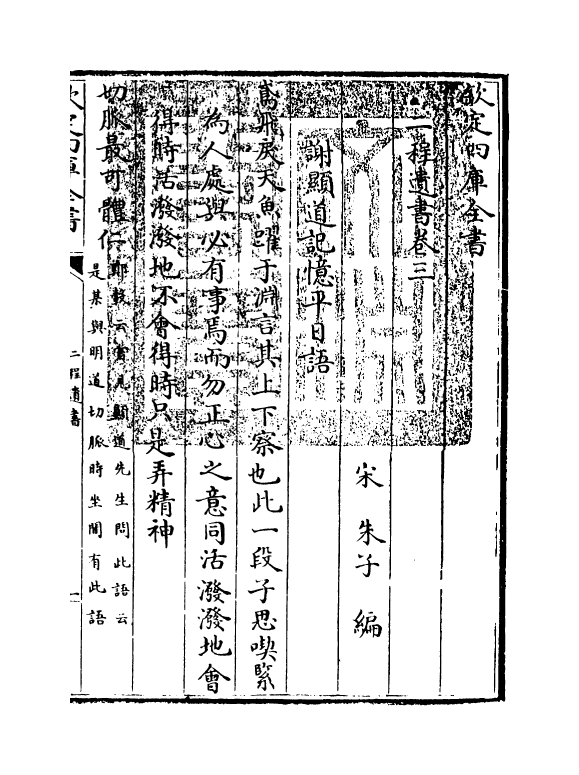 欽定四庫全書
二程遺書卷三
宋 朱子 編
謝顯道記憶平日語
鳶飛戾天魚躍于淵言其上下察也此一段子思喫緊
為人處與必有事焉而勿正心之意同活潑潑地會
得時活潑潑地不會得時只是弄精神
切脉最可體仁
鄭轂云嘗見顯道先生問此語云
是某與明道切脈時坐間有此語
欽定四庫全書
二程遺書
一